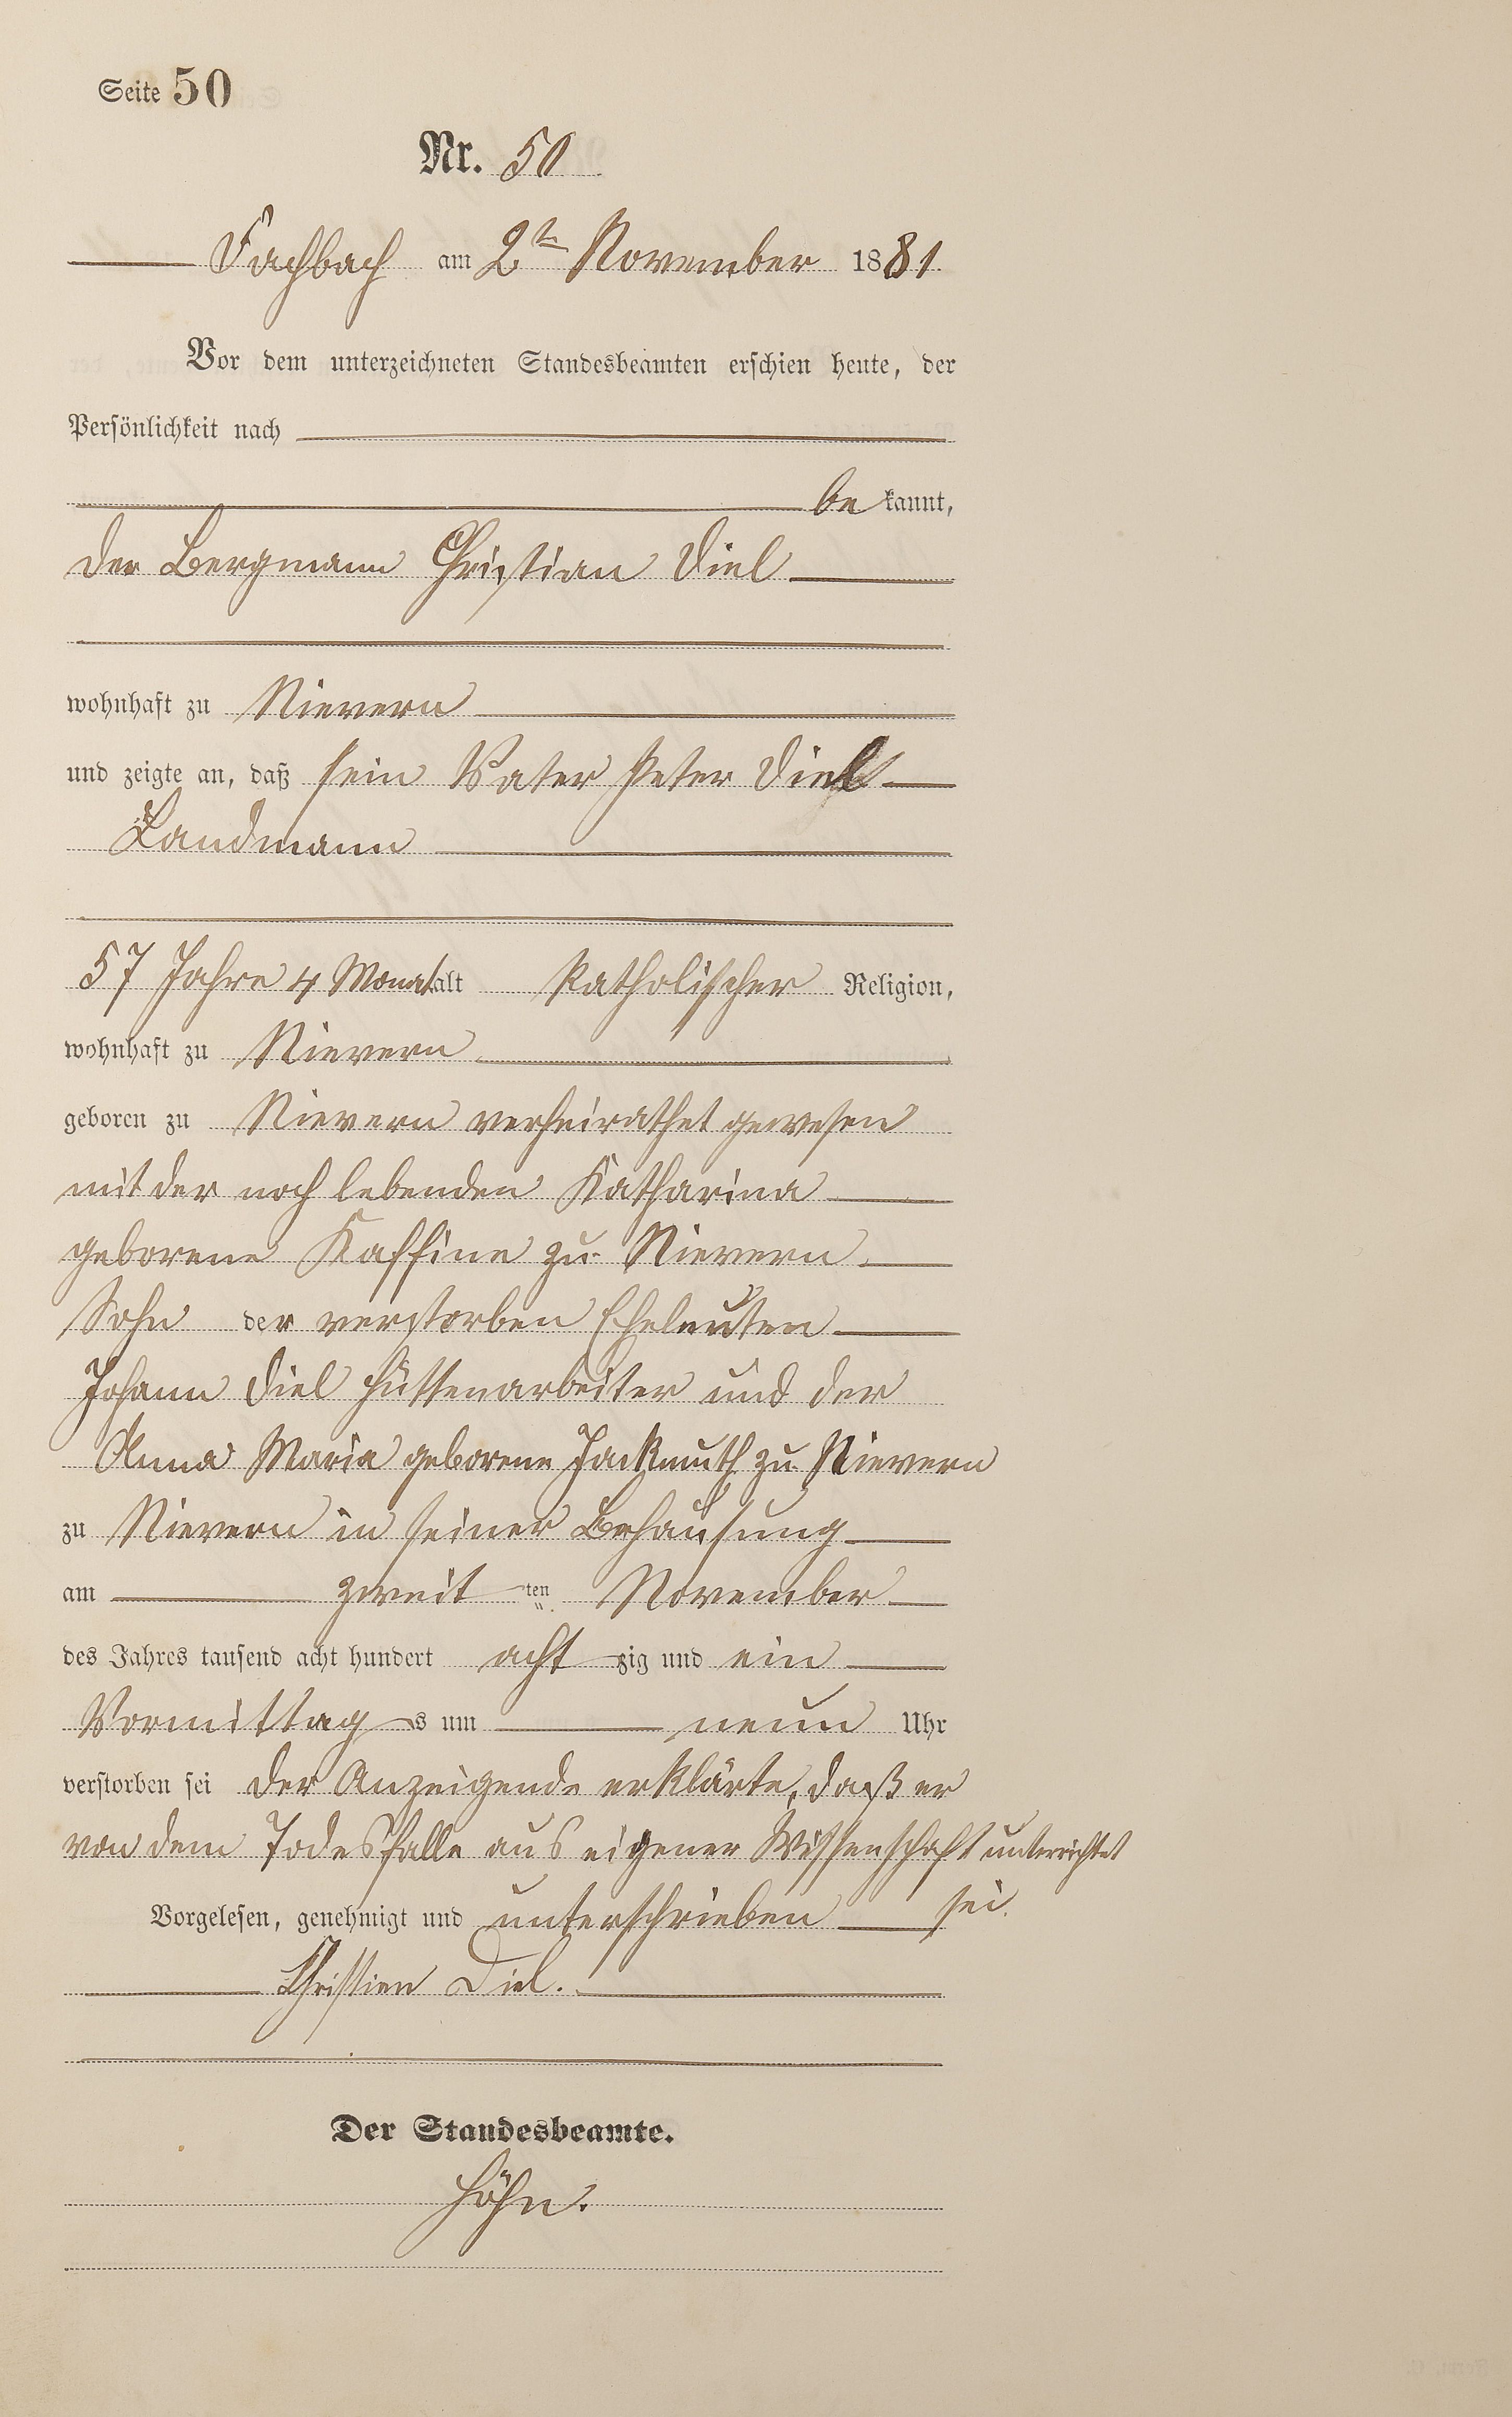 Seite 50
Nr. 50
Fachbach am 2ten November 1881.
Vor dem unterzeichneten Standesbeamten erschien heute, der
Persönlichkeit nach
be kannt,
der Bergmann Christian Diel
wohnhaft zu Nievern
und zeigte an, daß sein Vater Peter Diel
Landmann
57 Jahre 4 Monat alt Katholischer Religion,
wohnhaft zu Nievern
geboren zu Nievern verheirathet gewesen
mit der noch lebenden Katharina
geborene Kaffine zu Nievern.
Sohn der verstorben Eheleuten
Johann Diel Hüttenarbeiter und der
Anna Maria geborene Jackmuth zu Nievern
zu Nievern in seiner Behausung
am zweit ten November
des Jahres tausend acht hundert acht zig und ein
Vormittag s um neun Uhr
verstorben sei der Anzeigende erklärte, daß er
von dem Todesfalle aus eigener Wissenschaft unterrichtet
sei.
Vorgelesen, genehmigt und unterschrieben
Christian Diel.
Der Standesbeamte.
Höhn.